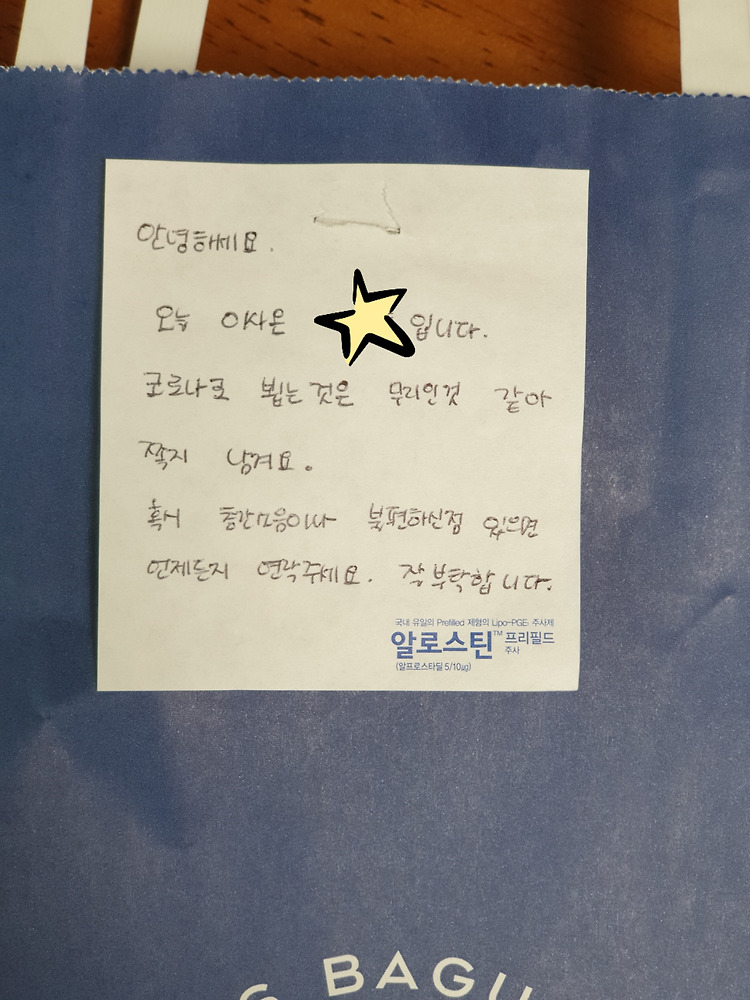 안녕하세요.
오늘 이사온 입니다.
코로나로 뵙는것은 무리인것 같아
쪽지 남겨요.
혹시 층간소음이나 불편하신점 있으면
언제든지 연락주세요. 잘 부탁합니다.
국내 유일의 Prefilled 제형의 Lipo-PGE₁ 주사제
알로스틴™ 프리필드
주사
(알프로스타딜 5/10μg)
G BAGU